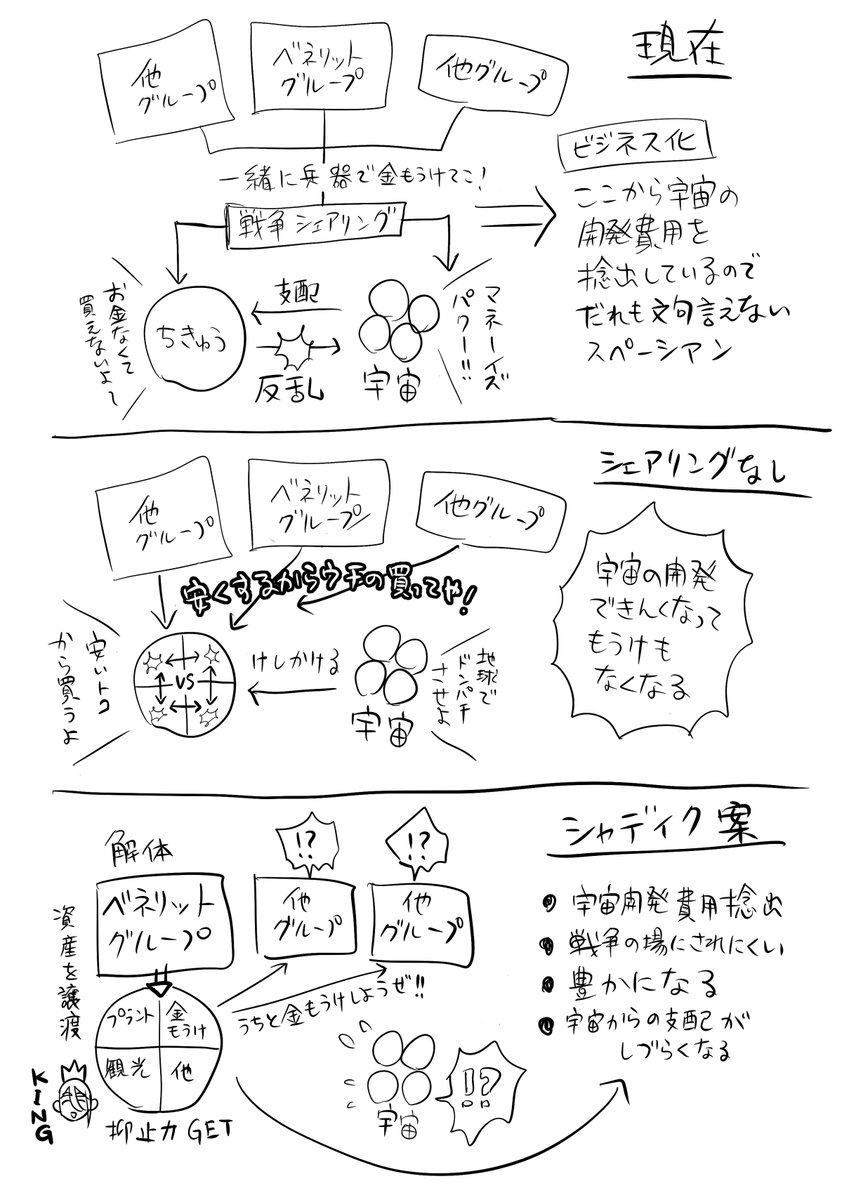 現在
他
グループ
ベネリット
グループ
他グループ
一緒に兵器で金もうけてこ!
戦争シェアリング
ビジネス化
ここから宇宙の
開発費用を
捻出しているので
だれも文句言えない
スペーシアン
お金なくて
買えないよて
ちきゅう
支配
反乱
宇宙
マネーイズ
パワー!!
シェアリングなし
他
グループ
ベネリット
グループ
他グループ
安くするからウチの買ってや!
安いトコ
から買うよ
VS
けしかける
宇宙
地球で
ドンパチ
させよ
宇宙の開発
できんくなって
もうけも
なくなる
シャディク案
解体
ベネリット
グループ
!?
他
グループ
!?
他
グループ
資産を譲渡
うちと金もうけしようぜ!!
プラント
金
もうけ
観光
他
KING
抑止力GET
宇宙
!?
宇宙開発費用捻出
戦争の場にされにくい
豊かになる
宇宙からの支配が
しづらくなる